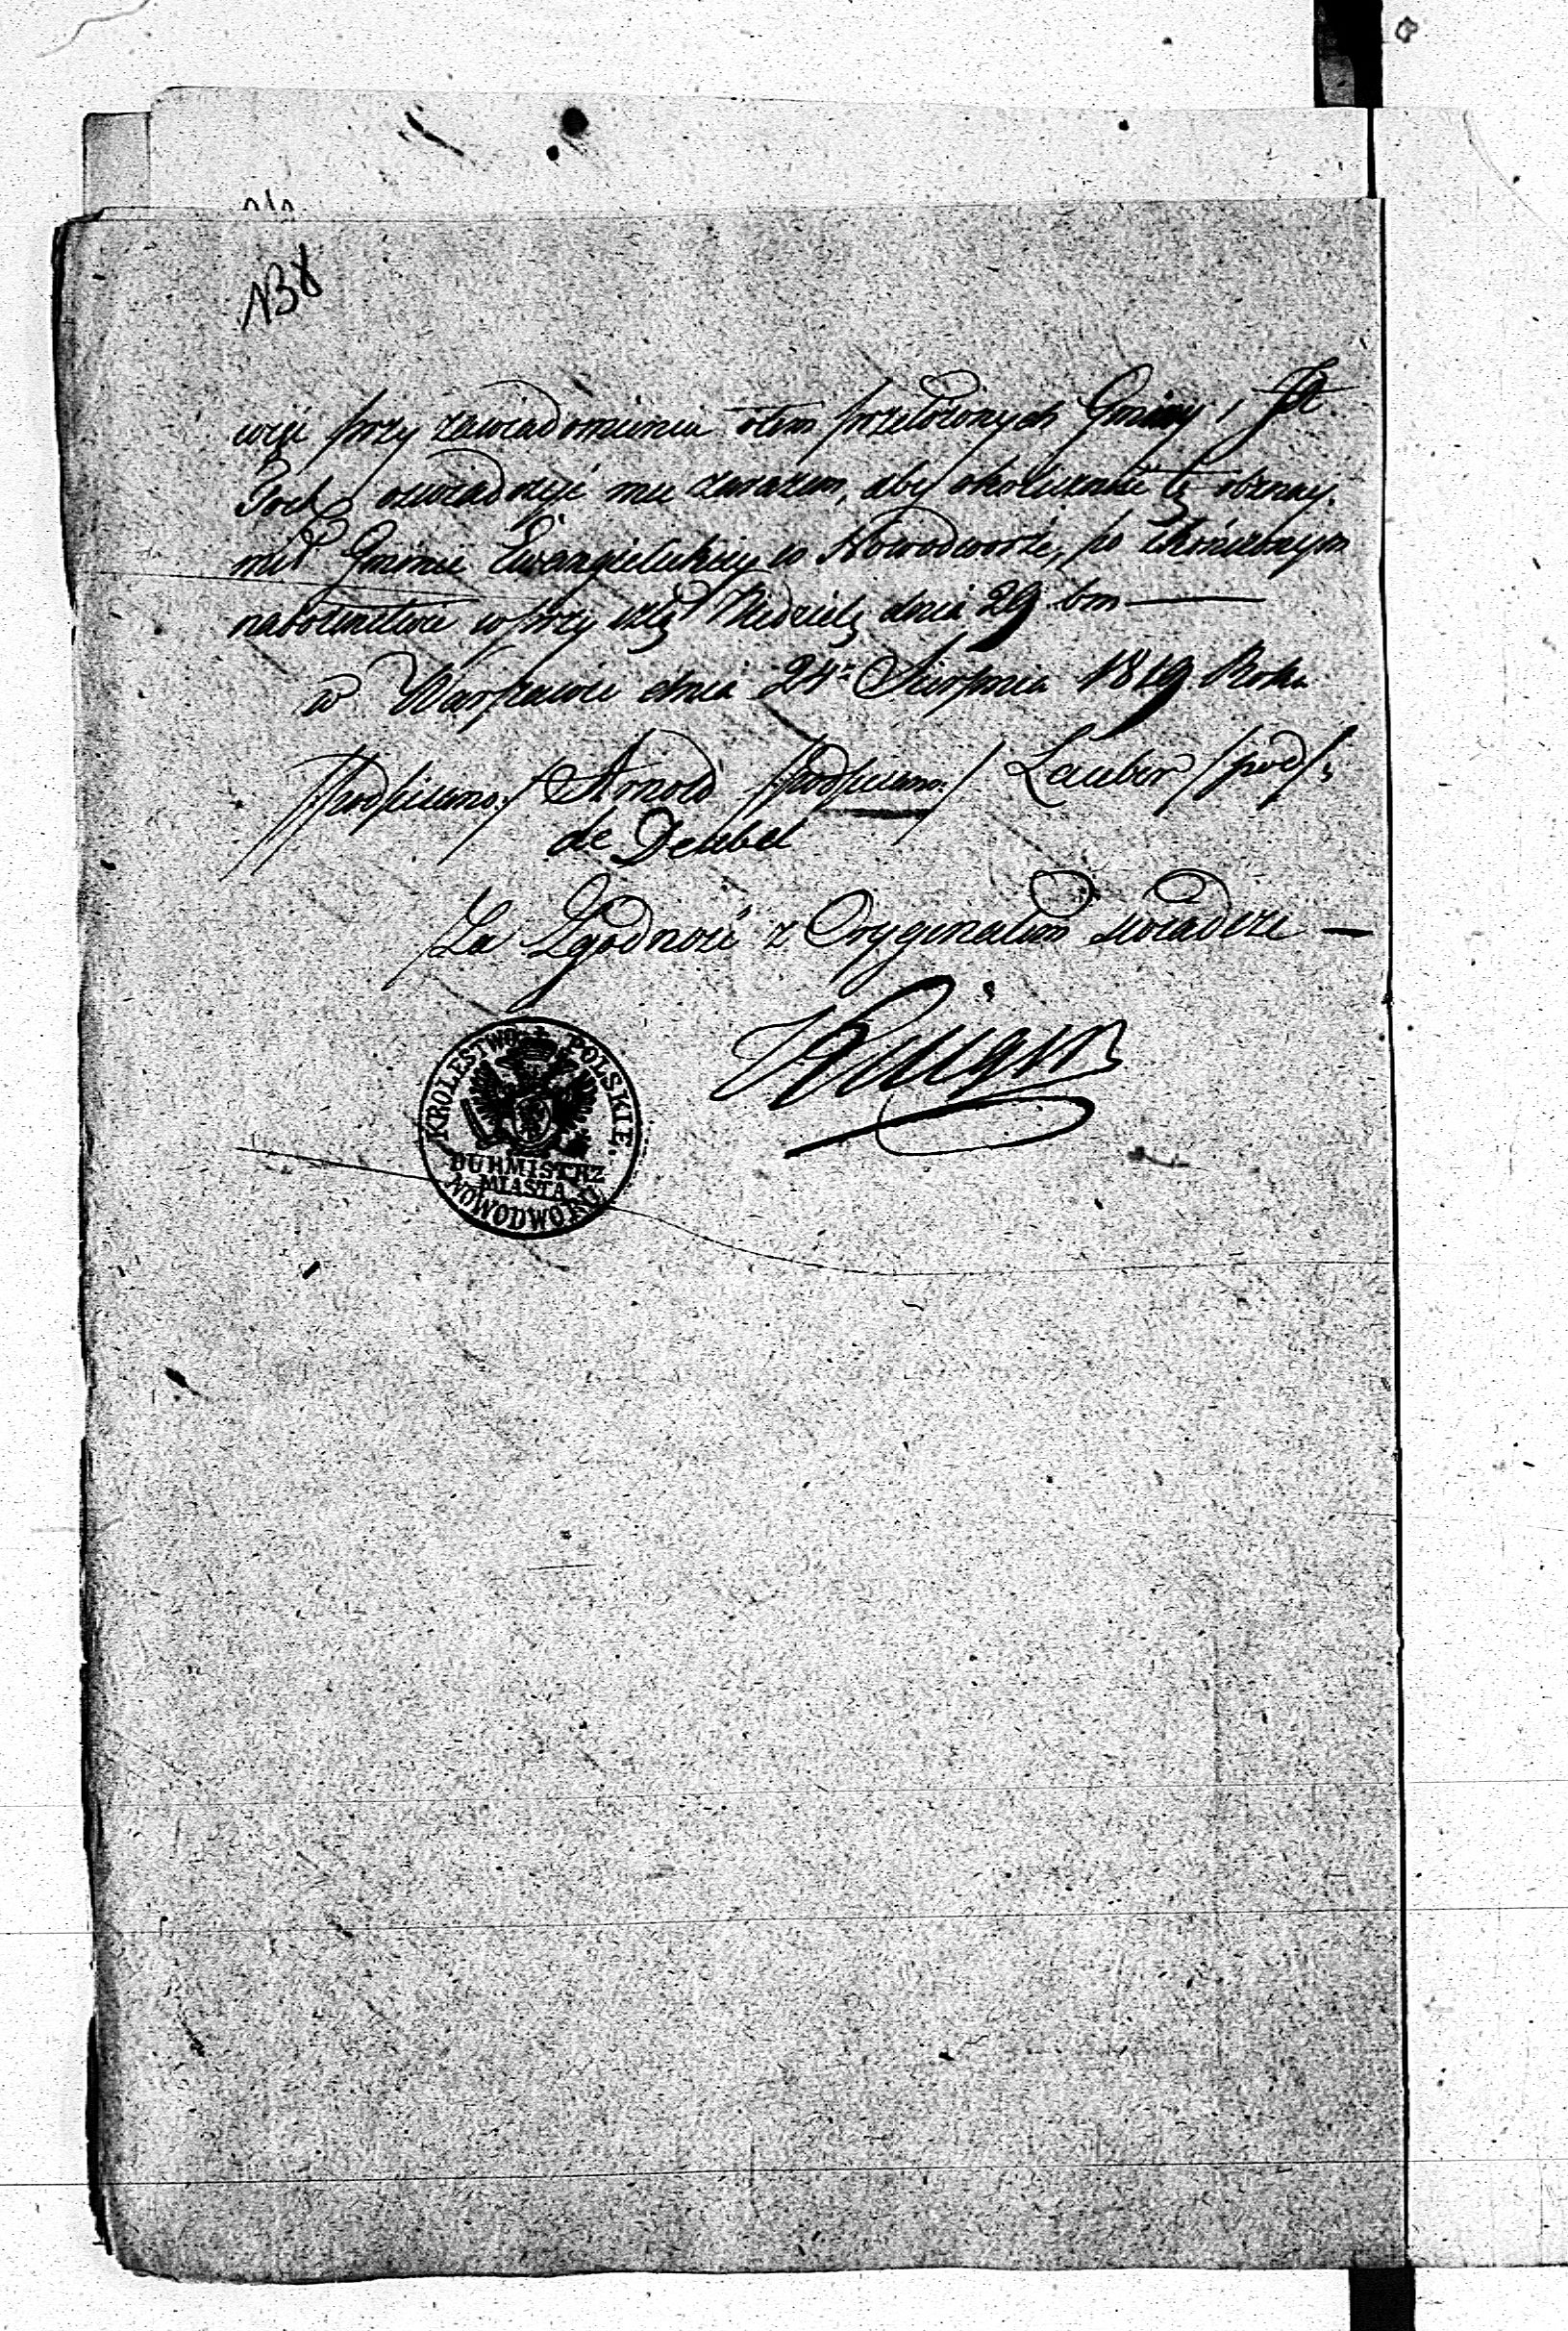 138
przy zawiadomieniu otem przełożonych Gminy,
oswiadczyć mu zarazem, aby okoliczność tę oznay-
mił Gminie Ewangielickiey w Nowodworze, po skończonym
nabożenstwie w przyszłą Niedzielę dnia 29 bm
w Warszawie dnia 24 Sierpnia 1819 Roku
/podpisano:/ Arnold /podpisano:/ Lauber /pod/
de Deubel
Za Zgodność z Oryginałem swiadczę
KROLESTWO POLSKIE.
BURMISTRZ
MIASTA
NOWODWORU